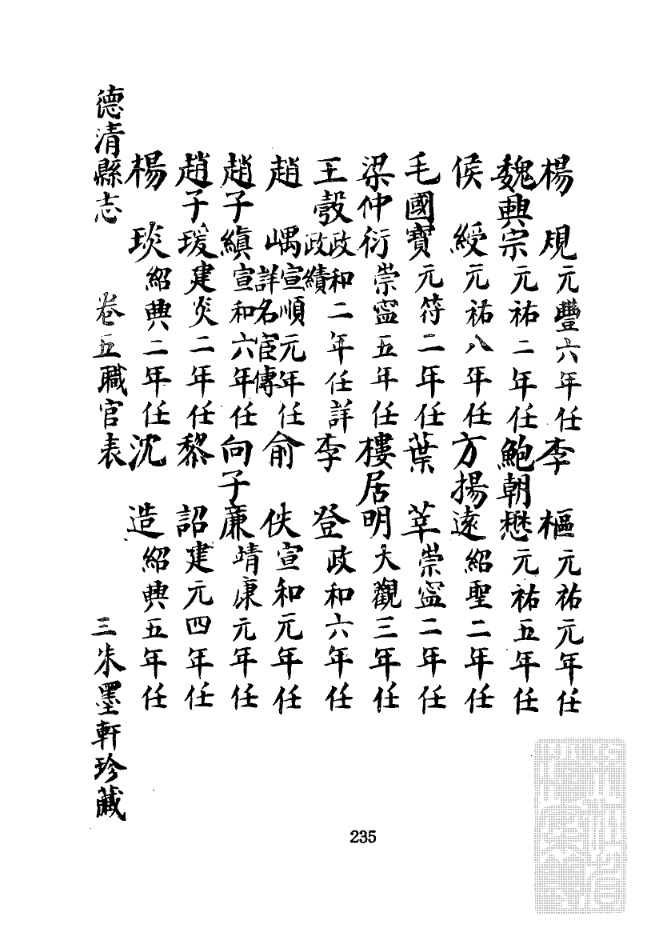 楊 覌 元豐六年任 李 樞 元祐元年任
魏興宗 元祐二年任 鮑朝懋 元祐五年任
侯 綬 元祐八年任 方揚遠 紹聖二年任
毛國寶 元符二年任 葉 莘 崇寍二年任
梁仲衍 崇寍五年任 樓居明 大觀三年任
王 彀 政和二年任詳政績 李 登 政和六年任
趙 嵎 宣順元年任詳名宦傳 俞 佚 宣和元年任
趙子縝 宣和六年任 向子廉 靖康元年任
趙子瑗 建炎二年任 黎 詔 建元四年任
楊 琰 紹興二年任 沈 造 紹興五年任
德清縣志 卷五職官表 三 朱墨軒珍藏
235